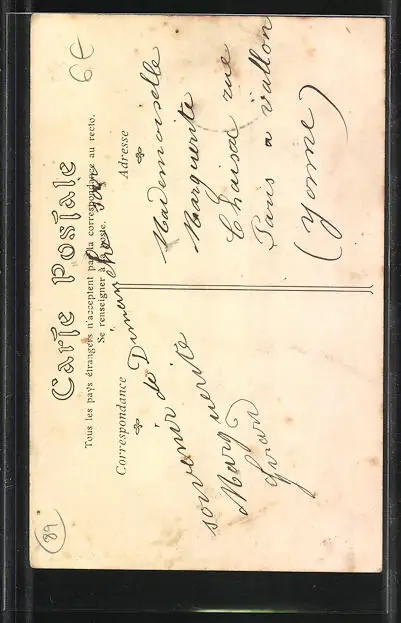 6€
Carte Postale
Tous les pays étrangers n'acceptent pas la correspondance au recto.
Se renseigner à la poste.
Correspondance
Adresse
souvenir de Dimanche
Marguerite
Mademoiselle
Marguerite
Chaise rue
Paris a vallon
(Yonne)
89